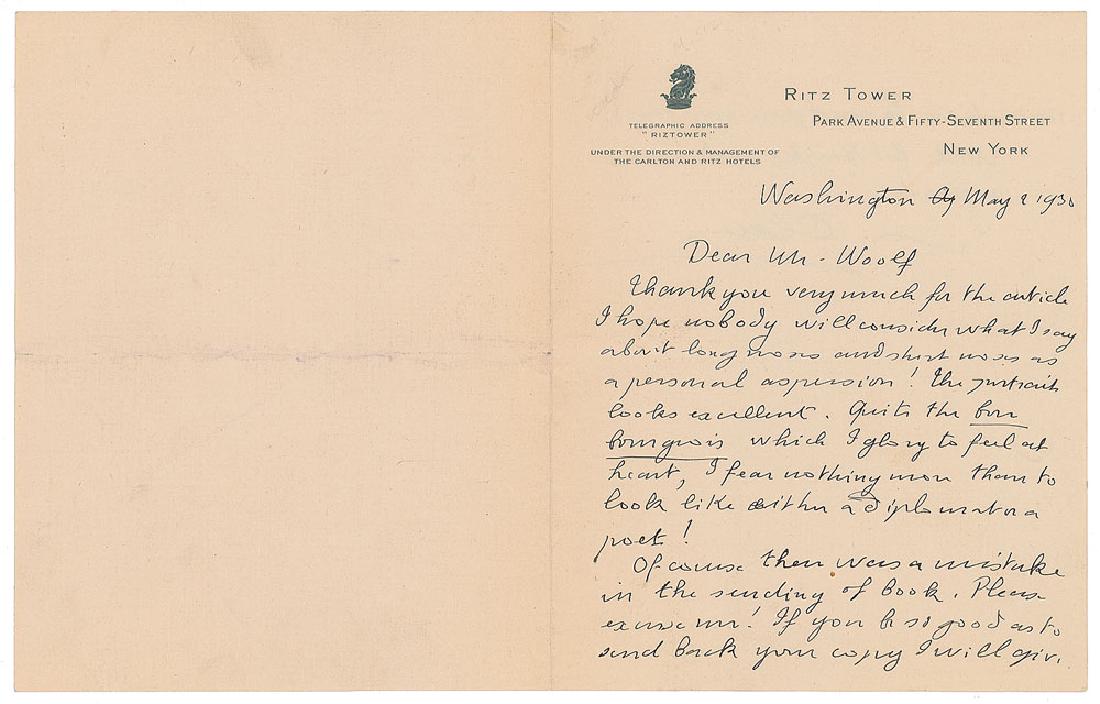 TELEGRAPHIC ADDRESS
"RIZTOWER"
UNDER THE DIRECTION & MANAGEMENT OF
THE CARLTON AND RITZ HOTELS
RITZ TOWER
PARK AVENUE & FIFTY-SEVENTH STREET
NEW YORK
Washington May 1930
Dear Mr. Woolf
Thank you very much for the article
I hope nobody will consider what I say
about long noses and short noses as
a personal aspersion! The portrait
looks excellent. Quite the bon
bourgeois which I glory to feel at
heart, I fear nothing more than to
look like either a diplomat or a
poet!
Of course there was a mistake
in the sending of book. Please
excuse me! If you be so good as to
send back your copy I will give